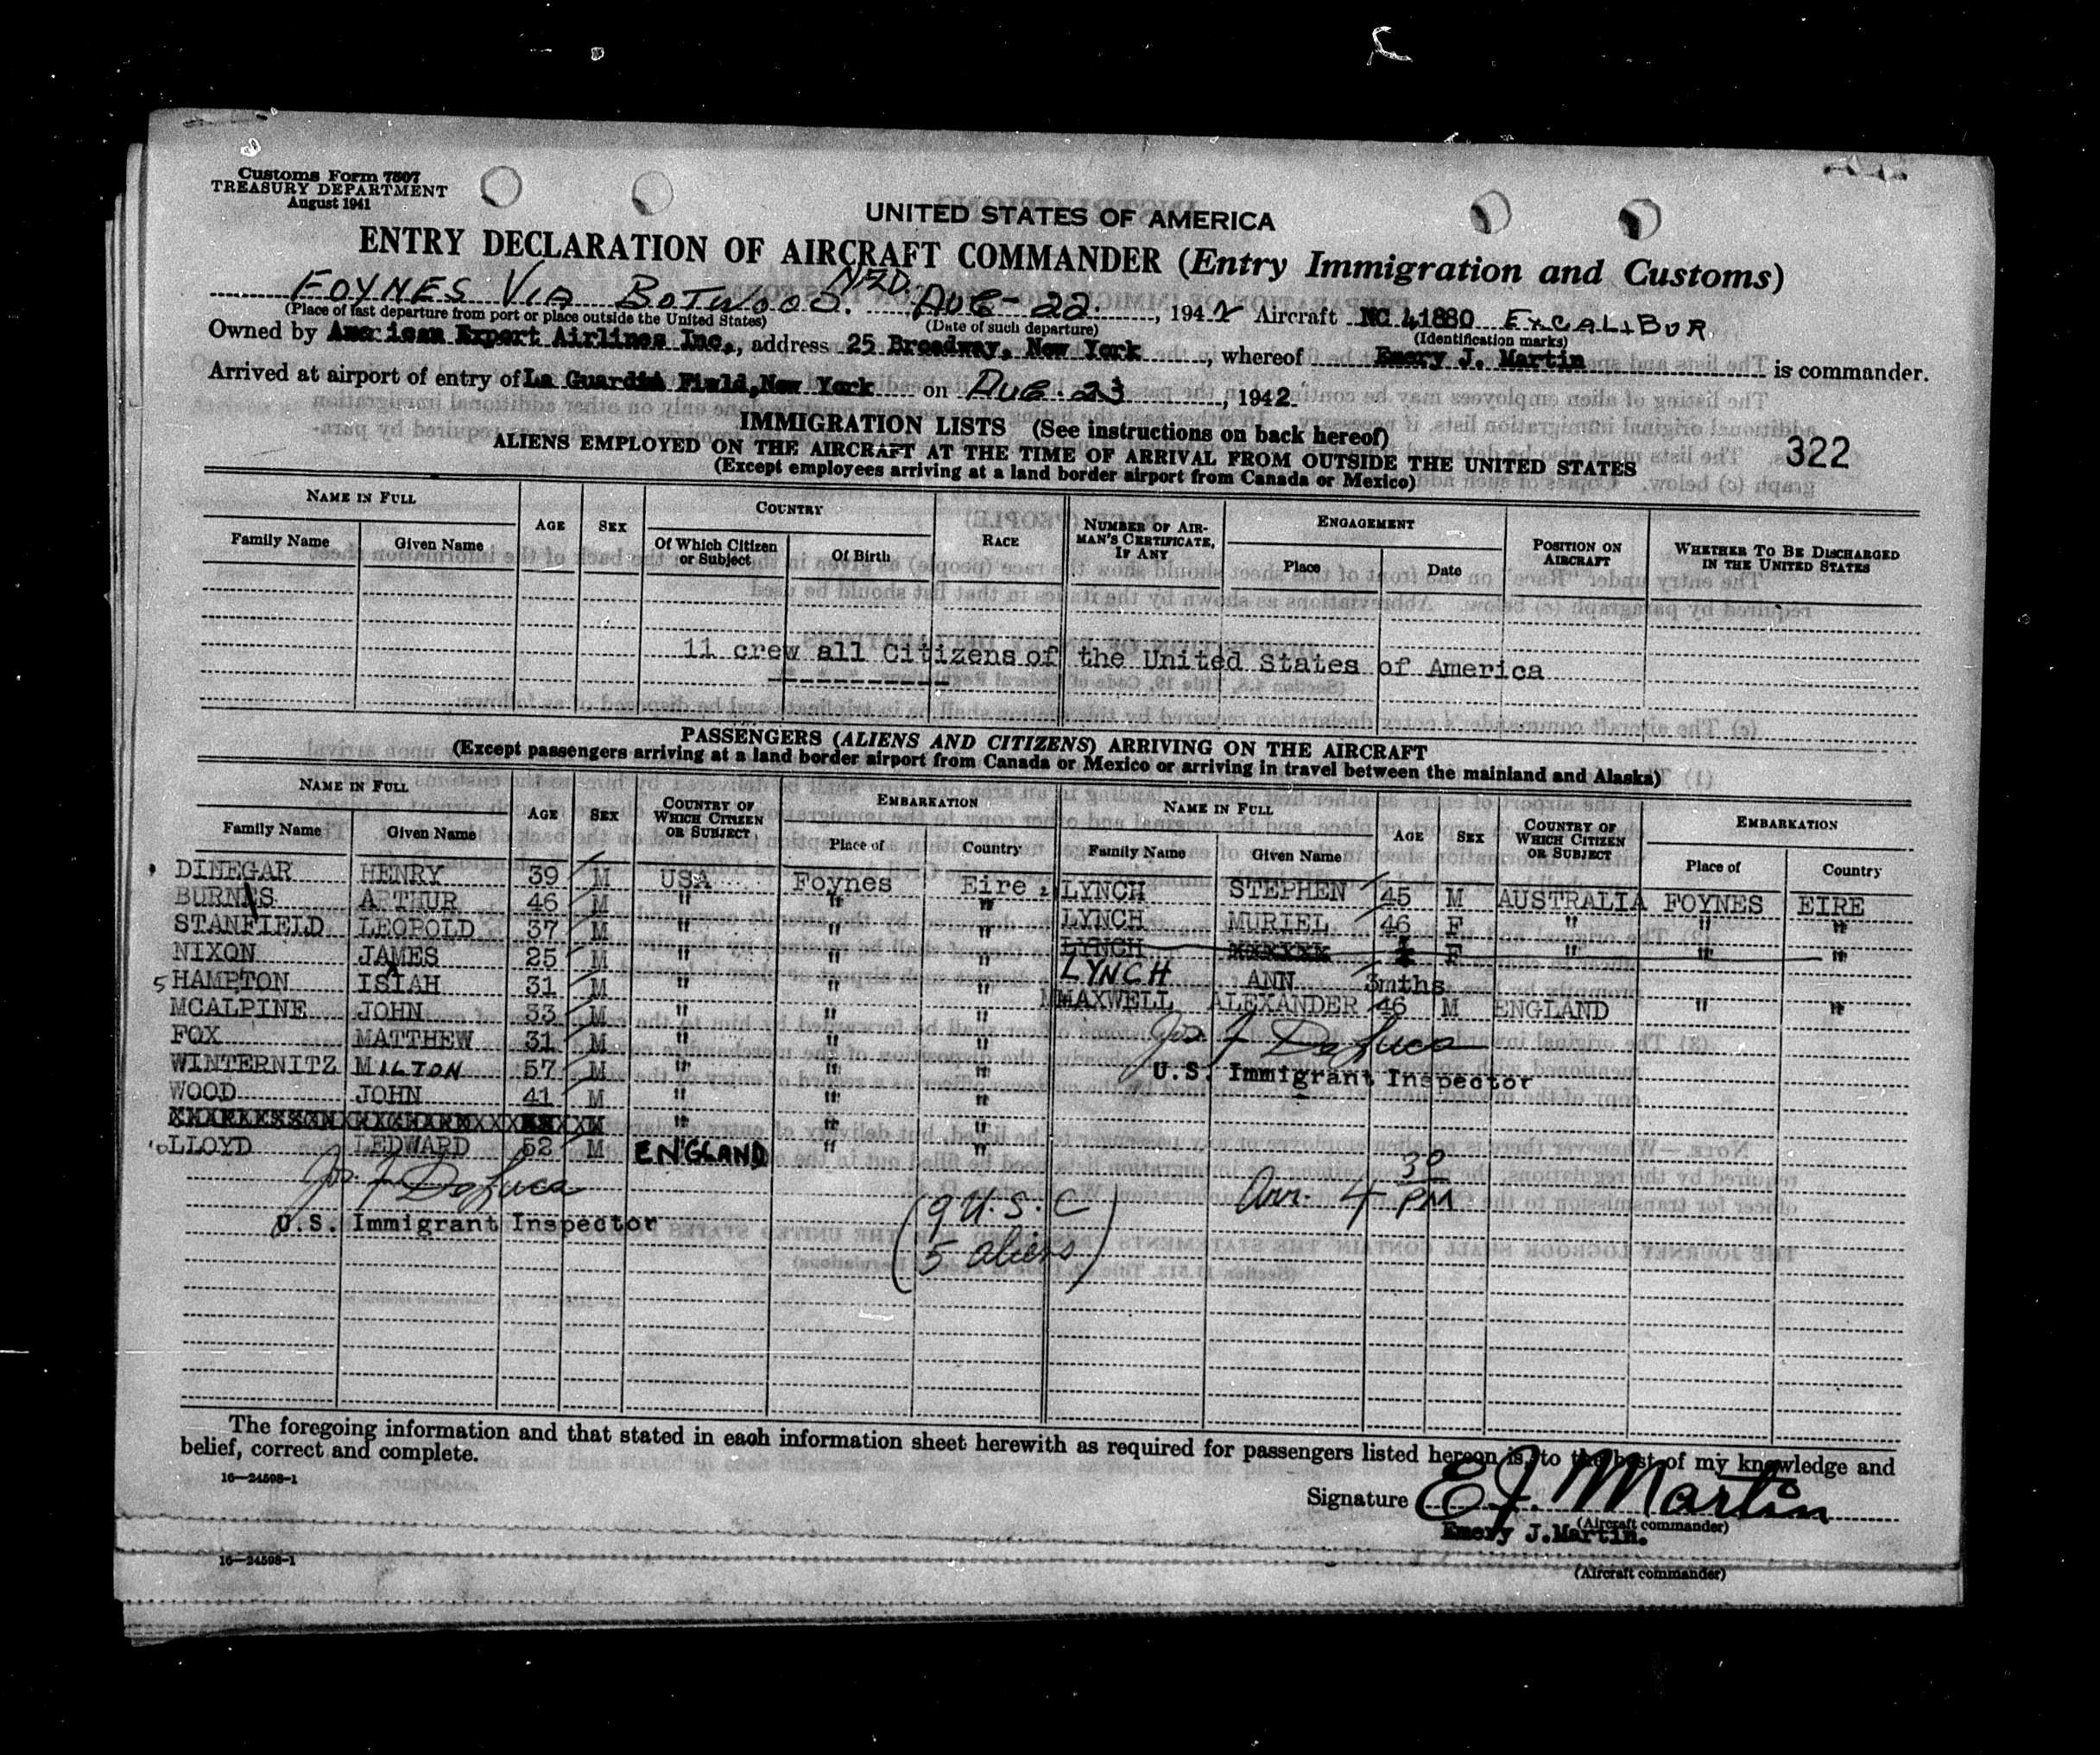 Customs Form 7507
TREASURY DEPARTMENT
August 1941
UNITED STATES OF AMERICA
ENTRY DECLARATION OF AIRCRAFT COMMANDER (Entry Immigration and Customs)
FOYNES VIA BOTWOOD. NFD. AUG-22, 1942 Aircraft NC 41880 EXCALIBUR
(Place of last departure from port or place outside the United States) (Date of such departure) (Identification marks)
Owned by American Export Airlines Inc., address 25 Broadway, New York, whereof Emery J. Martin is commander.
Arrived at airport of entry of La Guardia Field, New York on AUG. 23, 1942.
IMMIGRATION LISTS (See instructions on back hereof)
322
ALIENS EMPLOYED ON THE AIRCRAFT AT THE TIME OF ARRIVAL FROM OUTSIDE THE UNITED STATES
(Except employees arriving at a land border airport from Canada or Mexico)
NAME IN FULL AGE SEX COUNTRY RACE NUMBER OF AIRMAN'S CERTIFICATE, IF ANY ENGAGEMENT POSITION ON AIRCRAFT WHETHER TO BE DISCHARGED IN THE UNITED STATES
Family Name Given Name Of Which Citizen or Subject Of Birth Place Date
11 crew all Citizens of the United States of America
PASSENGERS (ALIENS AND CITIZENS) ARRIVING ON THE AIRCRAFT
(Except passengers arriving at a land border airport from Canada or Mexico or arriving in travel between the mainland and Alaska)
NAME IN FULL AGE SEX COUNTRY OF WHICH CITIZEN OR SUBJECT EMBARKATION NAME IN FULL AGE SEX COUNTRY OF WHICH CITIZEN OR SUBJECT EMBARKATION
Family Name Given Name Place of Country Family Name Given Name Place of Country
DINEGAR HENRY 39 M USA Foynes Eire LYNCH STEPHEN 45 M AUSTRALIA FOYNES EIRE
BURNS ARTHUR 46 M " " " LYNCH MURIEL 46 F " " "
STANFIELD LEOPOLD 37 M " " " LYNCH F " " "
NIXON JAMES 25 M " " " LYNCH ANN 3mths
5 HAMPTON ISIAH 31 M " " " MAXWELL ALEXANDER 46 M ENGLAND " "
MCALPINE JOHN 33 M " " "
Jos. F DeLuca
FOX MATTHEW 31 M " " "
U.S. Immigrant Inspector
WINTERNITZ MILTON 57 M " " "
WOOD JOHN 41 M " " "
" " "
10 LLOYD LEDWARD 52 M ENGLAND " "
Jos. F DeLuca
U.S. Immigrant Inspector
(9 U.S.C
5 aliens)
Arr. 4 30 PM
The foregoing information and that stated in each information sheet herewith as required for passengers listed hereon is, to the best of my knowledge and
belief, correct and complete.
16—24598-1
Signature E J. Martin
(Aircraft commander)
Emery J. Martin.
16—24598-1
(Aircraft commander)